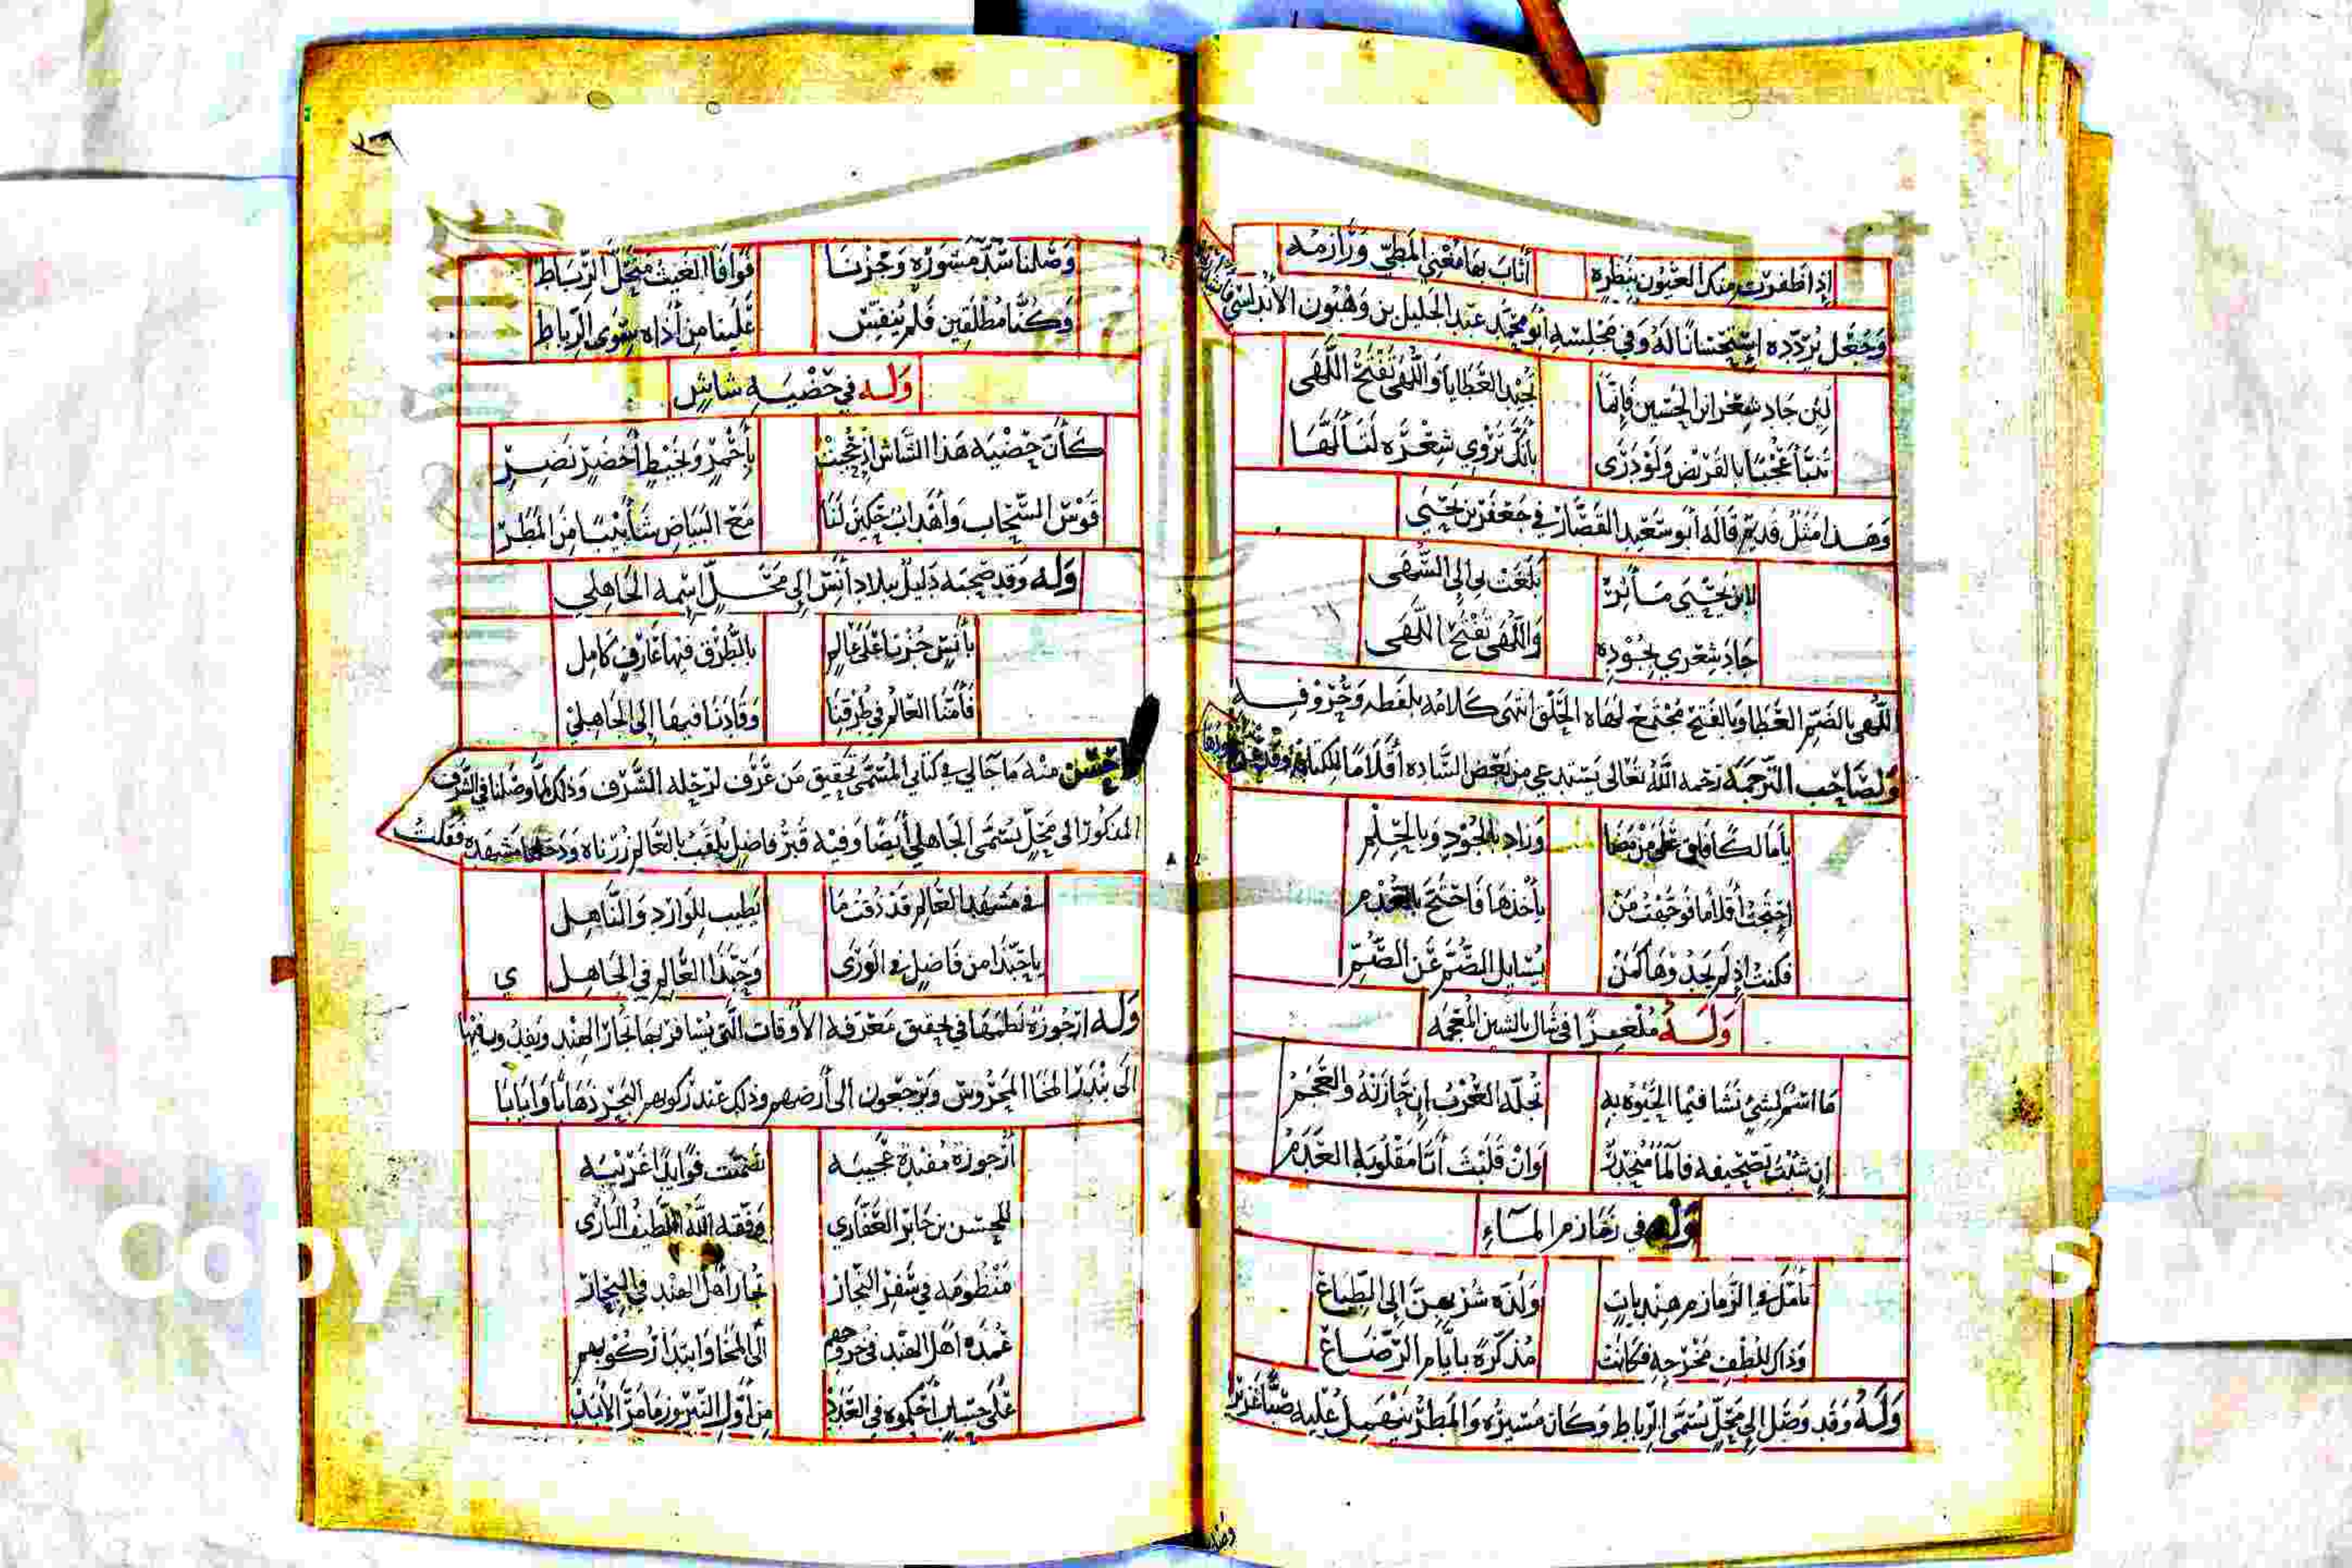 إِذا ظفرت منك العيون بنظرة أثاب بها معيي المطي ورازمه
وجعل يردده استحسانا له وفي مجلسه أبو محمد عبد الجليل بن وهبون الأندلسي
لئن جاد شعر ابن الحسين فإنما تجيد العطايا واللهى تفتح اللهى
تنبأ عجبا بالقريض ولو درى بأنك تروي شعره لتألها
وهذا مثل قديم قاله أبو سعيد القصار في جعفر بن يحيى
لابن يحيى مآثر بلغت بي إلى السهى
جاد شعري بجوده واللهى تفتح اللهى
اللهى بالضم العطايا وبالفتح مجتمع لهاه الحلق انتهى كلامه بلفظه وحروفه
ولصاحب الترجمة رحمه الله تعالى يستدعي من بعض الساده أقلاما للكتابة
يا مالكا فاق على من مضا وزاد بالجود وبالحلم
احتجت أقلاما فوجهت من يأخذها فاحتج بالعدم
فكنت إذ لم يجد وها كمن يسايل الصم عن الصم
وله ملغزا في شال بالشين المعجمه
ما اسم لشيء نشا فيما الحيوه به تجله العرب إن حازته والعجم
إن شئت تصحيفه فالما منحدر وان قلبت أتا مقلوبه العدم
وله في زمازم الماء
تأمل في الزمازم هندبات ولذه شربهن إلى الطباع
وذاك للطف مخرجه فكانت مذكرة بأيام الرضاع
وله وقد وصل إلى محل يسمى الرباط وكان مسيره والمطر ينهمل عليه صبا غزيرا
وصا
٢٦
وصلنا شد مشورة وحزنا فوافا الغيث محل الرباط
وكنا مطلقين فلم يفس علينا من أذاه سوى الرباط
وله في حضيه شاش
كأن حضيه هذا الشاش إذ عجبت بأحمر وبخيط أخضر نضر
قوس السحاب وأهداب حكين لنا مع البياض شأبيبا من المطر
وله وقد صحبه دليل ببلاد أنس إلى محل اسمه الجاهلي
بأنس حزنا على عالم بالطرق فيها عارف كامل
فأمنا العالم في طرقنا وقادنا فيها إلى الجاهلي
وأحسن منه ما جا لي في كتابي المسمى تحقيق من عرف لرحله الشرف وذلك لما وصلنا في الشرف
المذكور الى محل يسمى الجاهلي أيضا وفيه قبر فاضل يلقب بالعالم زرناه ودخلنا مشهده فقلت
في مشهد العالم قد ذقت ما يطيب للوارد والناهل
يا حبذا من فاضل في الورى وحبذا العالم في الجاهلي
وله ارجوزة نظمها في تحقيق معرفه الأوقات التي يسافر بها تجار الهند ويفدون فيها
الى بندر المخا المحروس ويرجعون الى أرضهم وذلك عند ركوبهم البحر ذهابا وايابا
أرجوزة مفيدة عجيبه تضمنت فوايدا غريبه
للمحسن بن جابر العفاري وفقه الله اللطيف الباري
منظومه في سفر التجار تجار أهل الهند في البحار
عمدة اهل الهند في خروجهم الى المخا وابتدا ركوبهم
على حساب أحكموه في العدد من أول النيروز ما مر الأبد